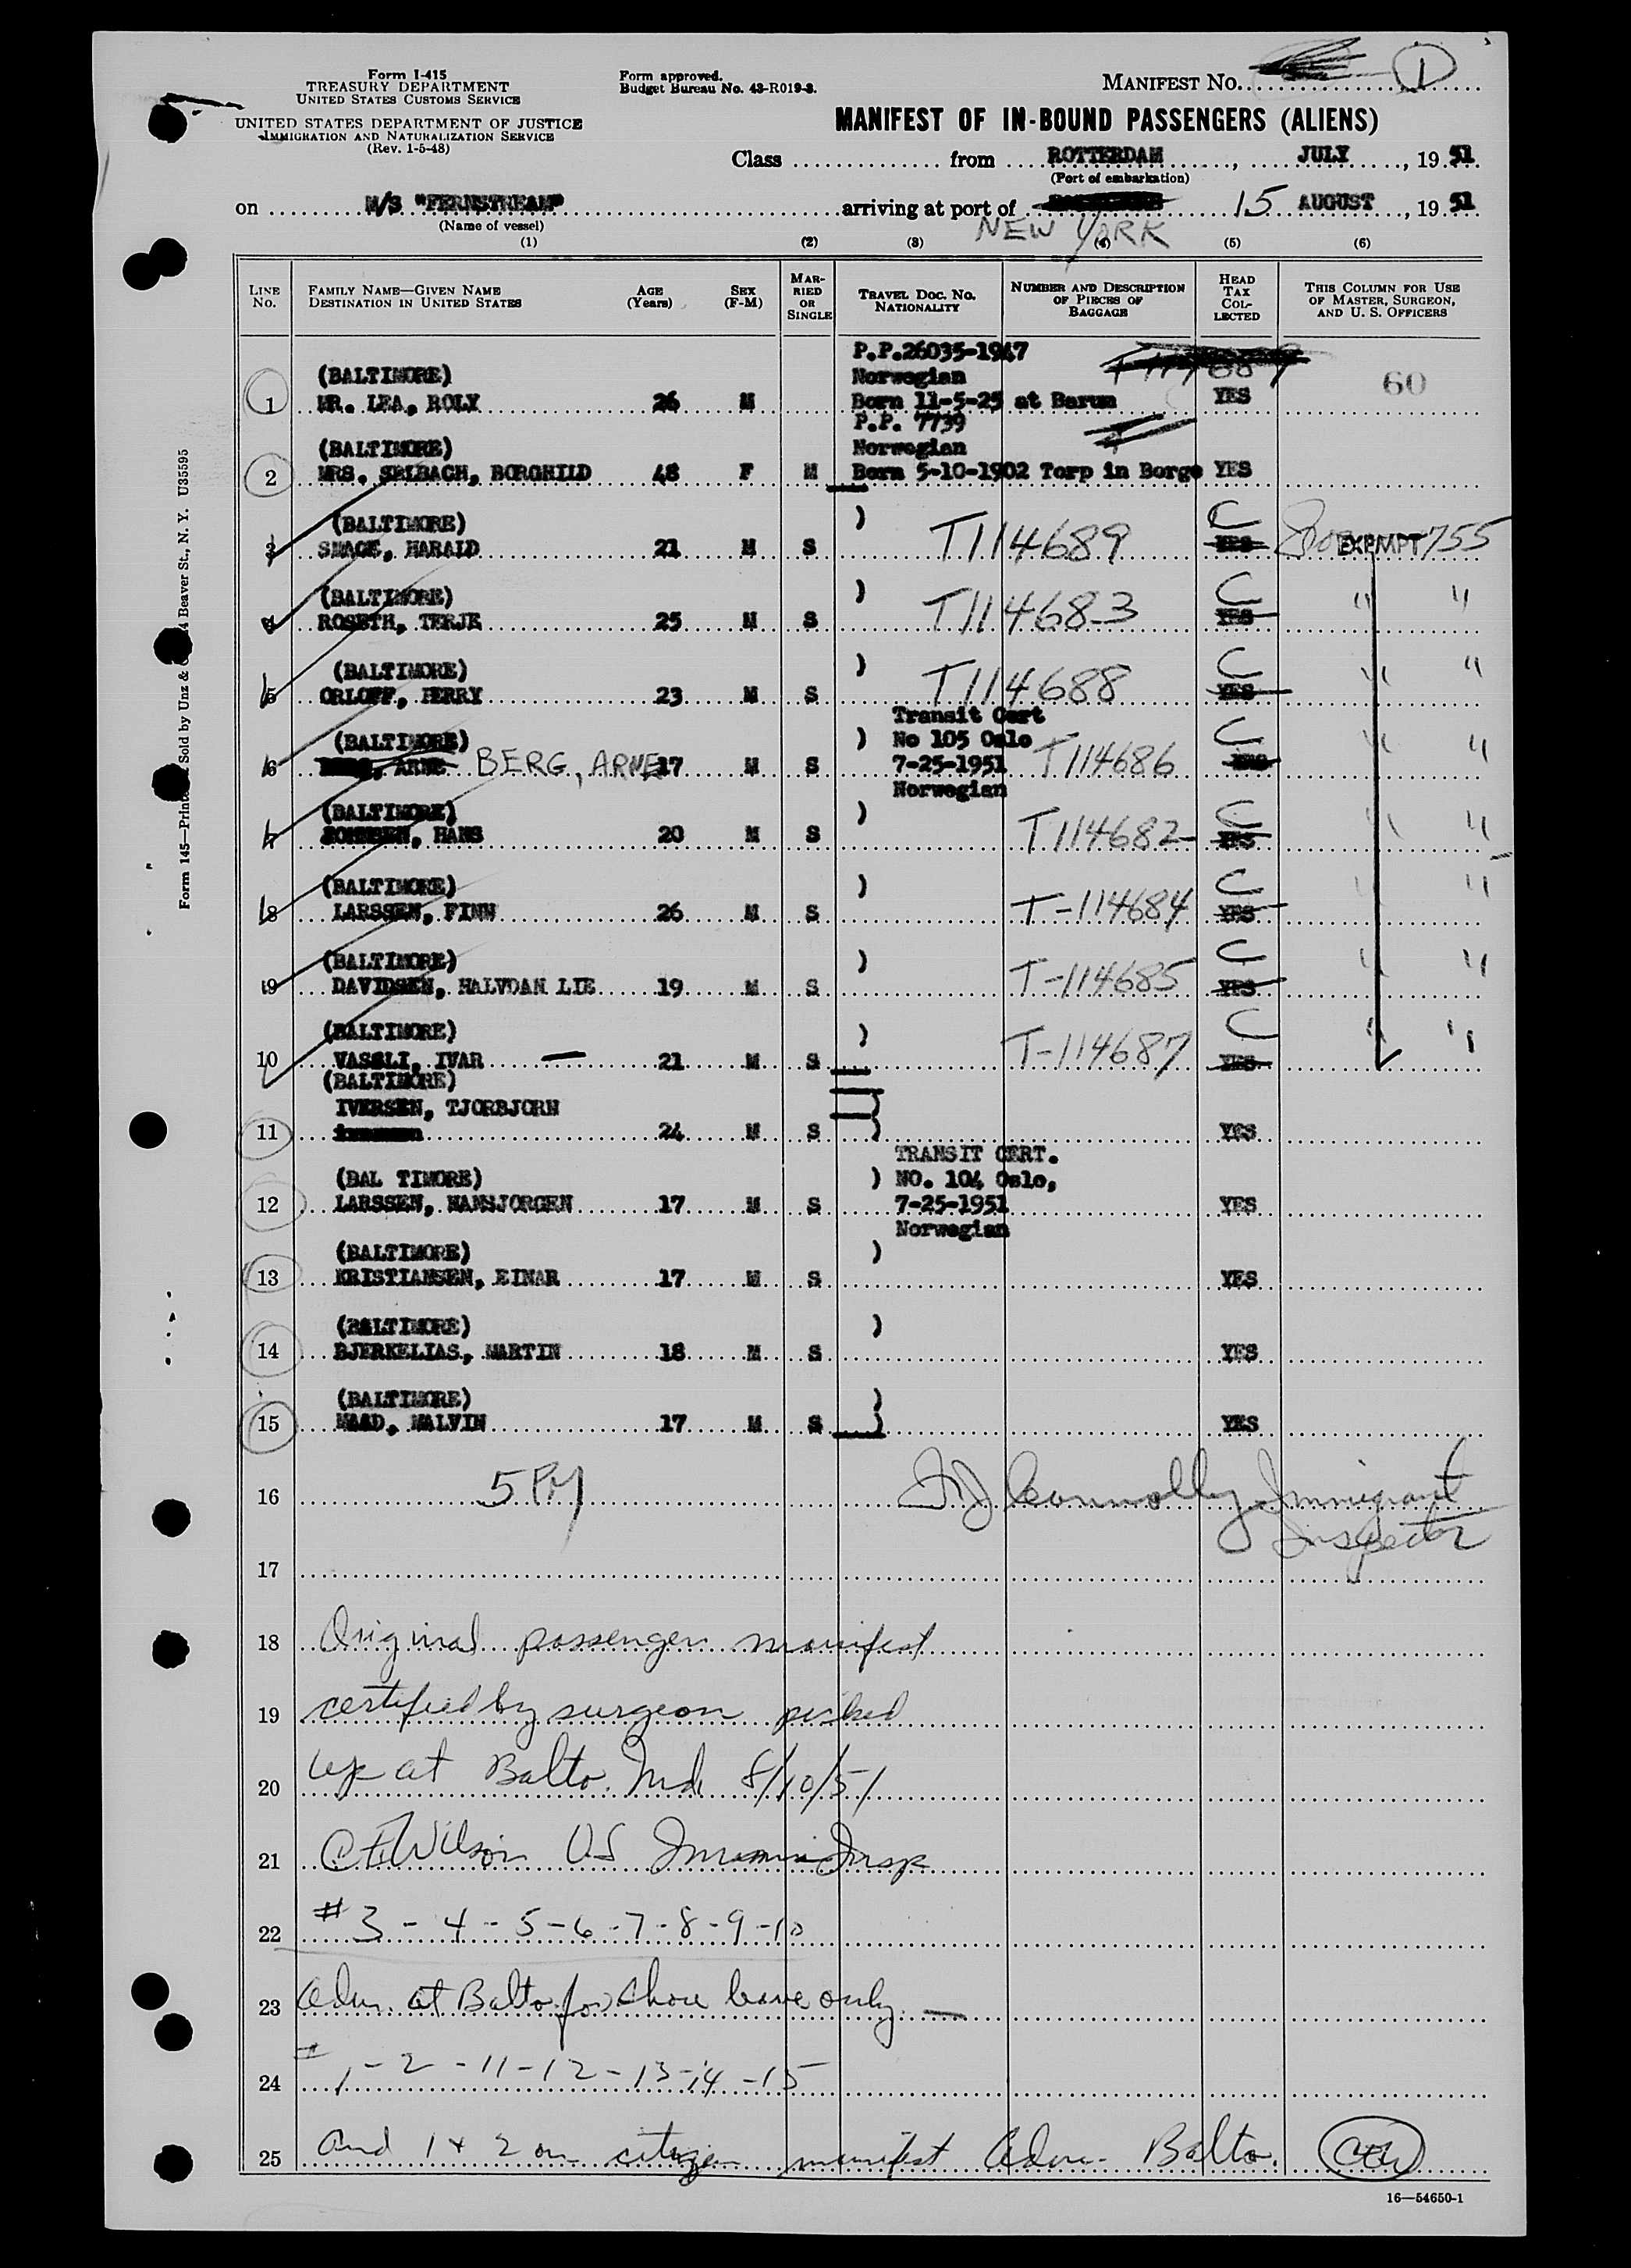 Form I-415
TREASURY DEPARTMENT
UNITED STATES CUSTOMS SERVICE
UNITED STATES DEPARTMENT OF JUSTICE
IMMIGRATION AND NATURALIZATION SERVICE
(Rev. 1-5-48)
Form approved.
Budget Bureau No. 43-R019-3.
MANIFEST NO. 1
MANIFEST OF IN-BOUND PASSENGERS (ALIENS)
Class from ROTTERDAM, JULY, 1951
(Port of embarkation)
on M/S "FERNSTREAM" arriving at port of 15 AUGUST, 1951
(Name of vessel) NEW YORK
(1) (2) (3) (4) (5) (6)
LINE No. FAMILY NAME—GIVEN NAME DESTINATION IN UNITED STATES AGE (Years) SEX (F-M) MARRIED OR SINGLE TRAVEL DOC. NO. NATIONALITY NUMBER AND DESCRIPTION OF PIECES OF BAGGAGE HEAD TAX COLLECTED THIS COLUMN FOR USE OF MASTER, SURGEON, AND U. S. OFFICERS
P.P.26035-1947
(BALTIMORE) Norwegian 60
1 MR. LEA, ROLY 26 M Born 11-5-25 at Barum YES
P.P. 7739
(BALTIMORE) Norwegian
2 MRS. SELBACH, BORGHILD 48 F M Born 5-10-1902 Torp in Borge YES
(BALTIMORE) ) C
3 SMAGE, HARALD 21 M S T114689 YES EXEMPT 755
(BALTIMORE) ) C
4 ROSETH, TERJE 25 M S T114683 YES " "
(BALTIMORE) ) C
5 ORLOFF, PERRY 23 M S T114688 YES " "
Transit Cert
(BALTIMORE) ) No 105 Oslo C
6 BERG, ARNE 17 M S 7-25-1951 T114686 " "
Norwegian
(BALTIMORE) ) C
7 JOHNSEN, HANS 20 M S T114682 YES " "
(BALTIMORE) ) C
8 LARSSEN, FINN 26 M S T-114684 YES " "
(BALTIMORE) ) C
9 DAVIDSEN, HALVDAN LIE 19 M S T-114685 YES " "
(BALTIMORE) ) C
10 VASSLI, IVAR 21 M S T-114687 YES " "
(BALTIMORE)
IVERSEN, TJORBJORN )
11 24 M S ) YES
TRANSIT CERT.
(BAL TIMORE) ) NO. 104 Oslo,
12 LARSSEN, HANSJORGEN 17 M S 7-25-1951 YES
Norwegian
(BALTIMORE) )
13 KRISTIANSEN, EINAR 17 M S YES
(BALTIMORE) )
14 BJERKELIAS, MARTIN 18 M S YES
(BALTIMORE) )
15 MAAD, MALVIN 17 M S ) YES
16 5 PM Connolly Immigrant
Inspector
17
18 Original passenger manifest
19 certified by surgeon picked
20 up at Balto. Md. 8/10/51
21 CEWilson US Immin Insp
22 #3-4-5-6-7-8-9-10
23 Adm. at Balto for shore leave only.
24 # 1-2-11-12-13-14-15
25 and 1 + 2 on citizen manifest Adm. Balto. CEW
16—54650-1
Form 145—Printed Sold by Unz & Beaver St., N. Y. U35595